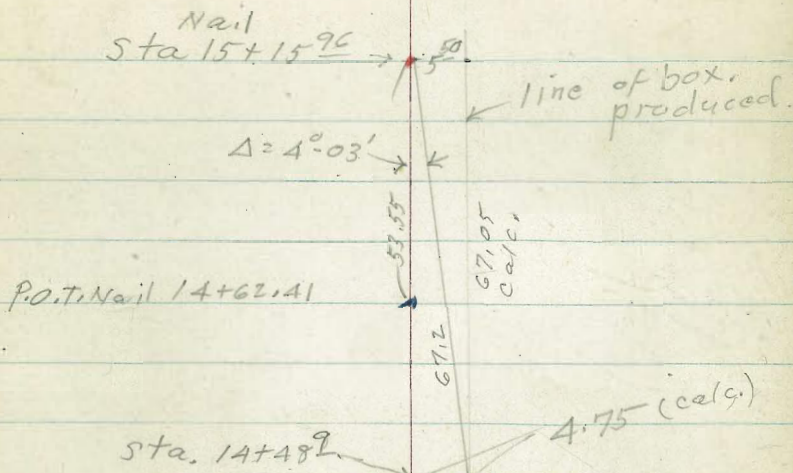 Nail
Sta 15+15 96
5 50
line of box.
produced.
Δ = 4°-03'
53.55
67.05
calc.
P.O.T. Nail 14+62.41
67.2
4.75 (calc.)
Sta. 14+48 9